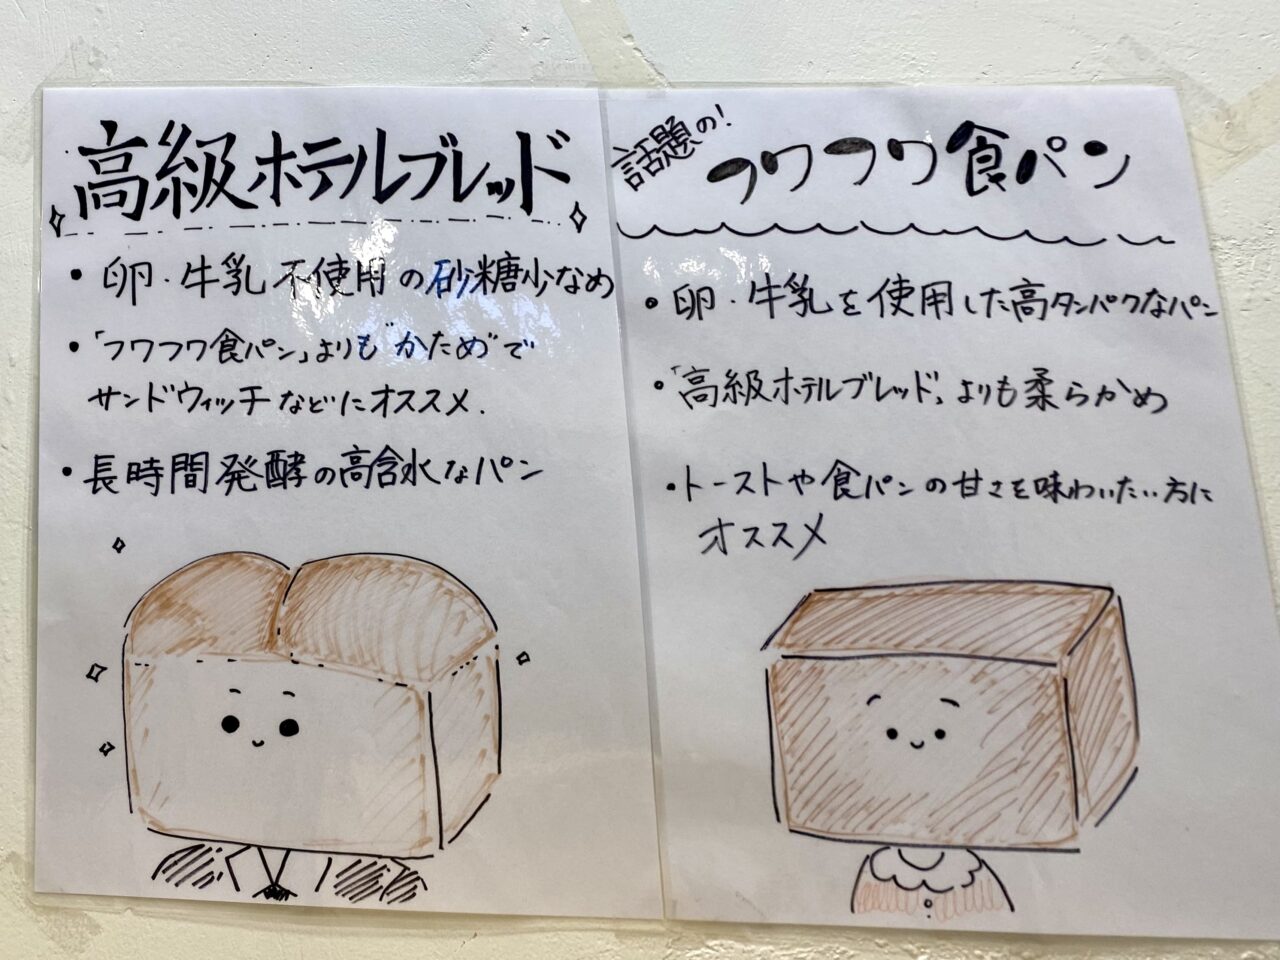 高級ホテルブレッド
・卵・牛乳不使用の砂糖少なめ
・「フワフワ食パン」よりも"かため"で
サンドウィッチなどにオススメ.
・長時間発酵の高含水なパン
話題の!
フワフワ食パン
・卵・牛乳を使用した高タンパクなパン
・「高級ホテルブレッド」よりも柔らかめ
・トーストや食パンの甘さを味わいたい方に
オススメ